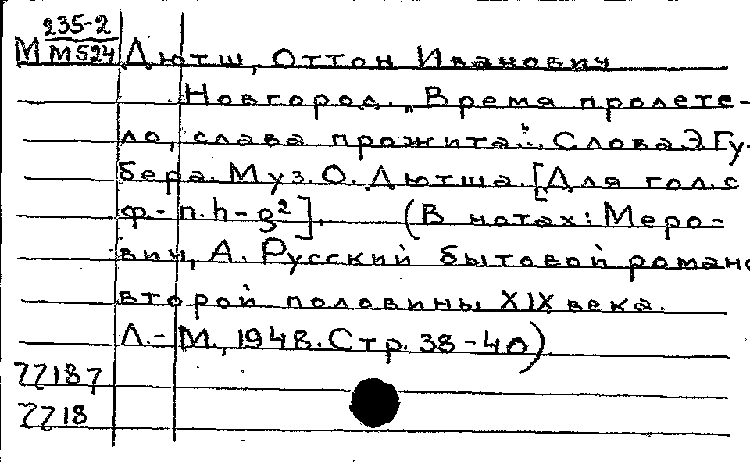 235-2
М М524 Дютш, Оттон Иванович
Новгород. „Время пролете-
ло, слава прожита". Слова Э. Гу-
бера. Муз. О. Дютша. [Для гол. с
ф-п. h-g²]. (В нотах: Меро-
вич, А. Русский бытовой романс
второй половины XIX века.
Л.-М., 1948. Стр. 38-40)
77187
7718